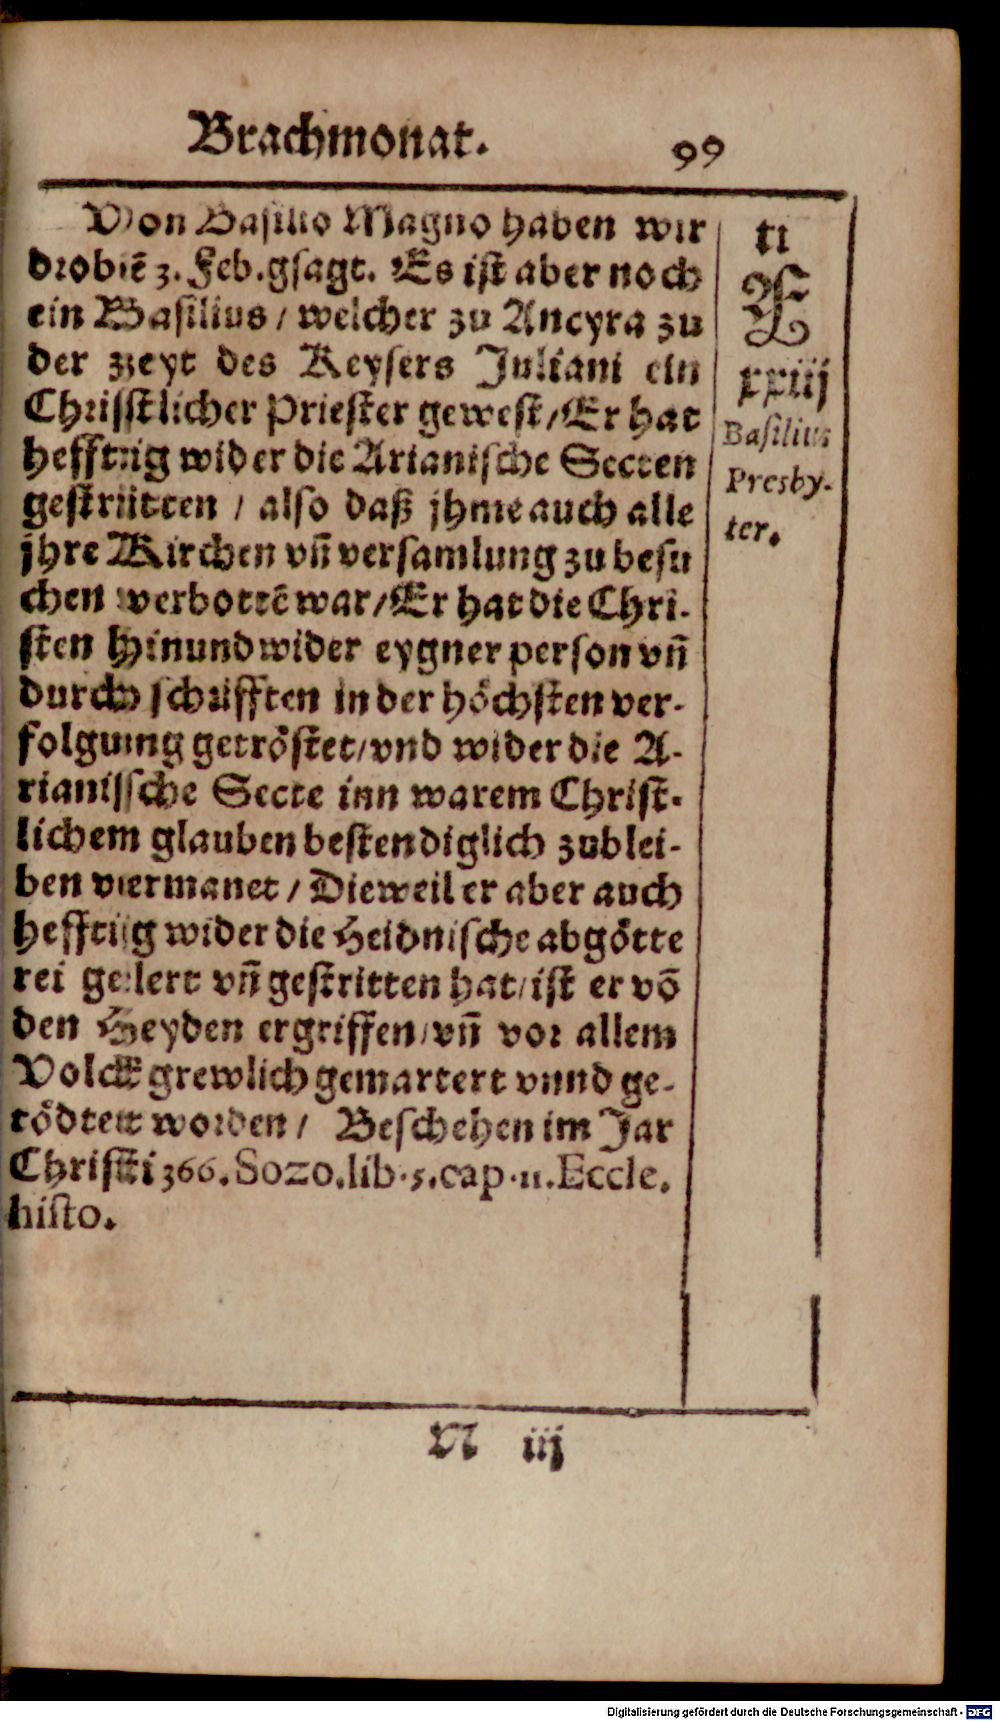 Brachmonat. 99
Von Basilio Magno haben wir
drobẽ 3. Feb. gsagt. Es ist aber noch
ein Basilius / welcher zu Ancyra zu
der zeyt des Keysers Juliani ein
Christlicher Priester gewest / Er hat
hefftig wider die Arianische Secten
gestritten / also daß jhme auch alle
jhre Kirchen vñ versamlung zu besu
chen verbottẽ war / Er hat die Chri-
sten hinundwider eygner person vñ
durch schrifften in der höchsten ver-
folgung getröstet / vnd wider die A-
rianische Secte inn warem Christ-
lichem glauben bestendiglich zublei-
ben vermanet / Dieweil er aber auch
hefftig wider die Heidnische abgötte
rei gelert vñ gestritten hat / ist er võ
den Heyden ergriffen / vñ vor allem
Volck grewlich gemartert vnnd ge-
tödtet worden / Beschehen im Jar
Christi 366. Sozo. lib. 5. cap. 11. Eccle.
histo.
11
xxiij
Basilius
Presby-
ter.
N iij
Digitalisierung gefördert durch die Deutsche Forschungsgemeinschaft - DFG